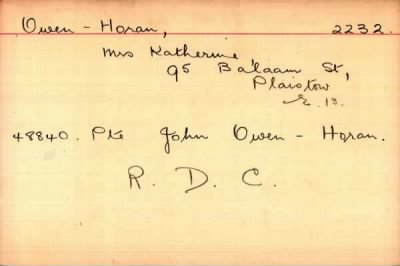 Owen - Horan, 2232.
Mrs Katherine
95 Balaam St,
Plaistow
E. 13.
48840. Pte John Owen - Horan.
R. D. C.